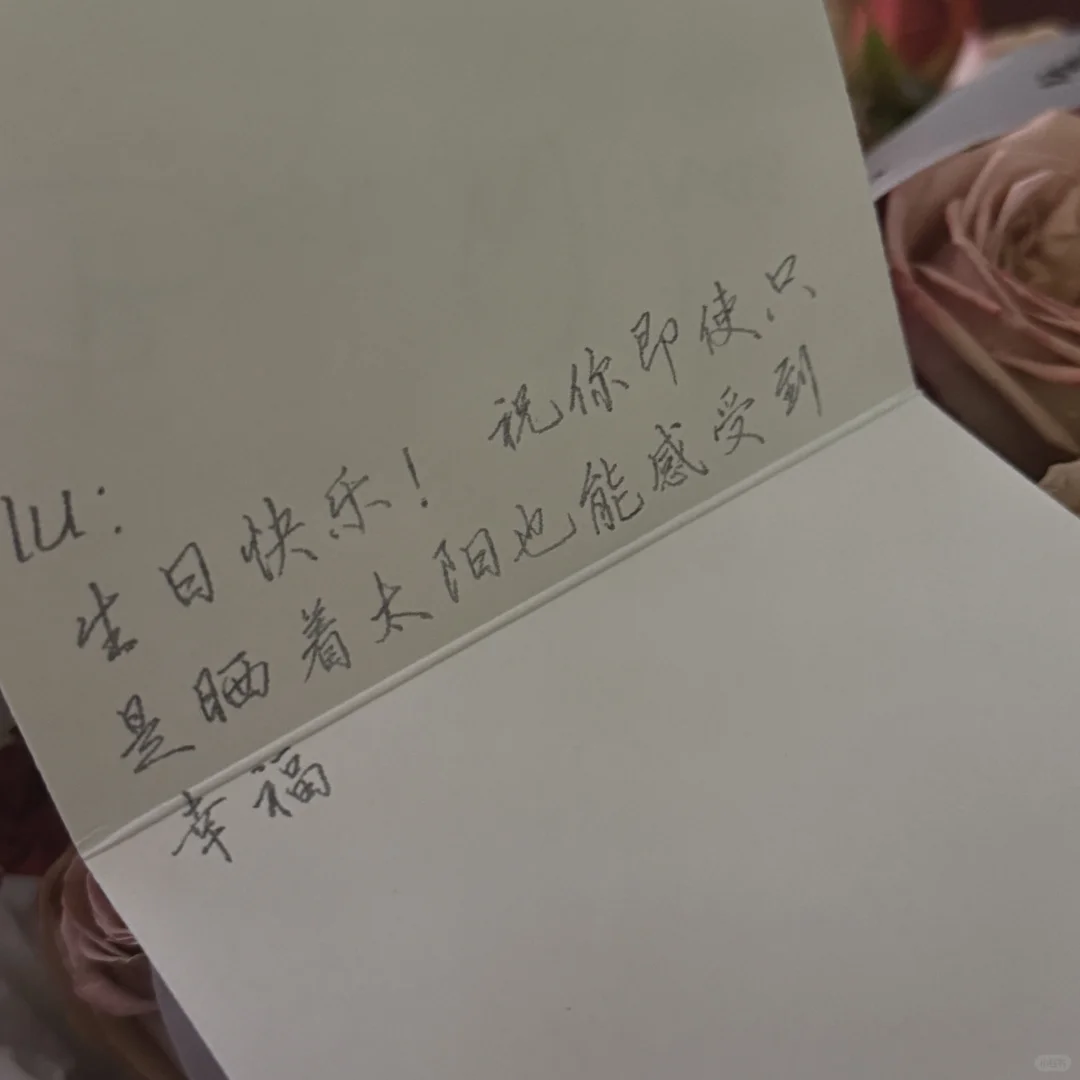 lu:
生日快乐！ 祝你即使只
是晒着太阳也能感受到
幸福